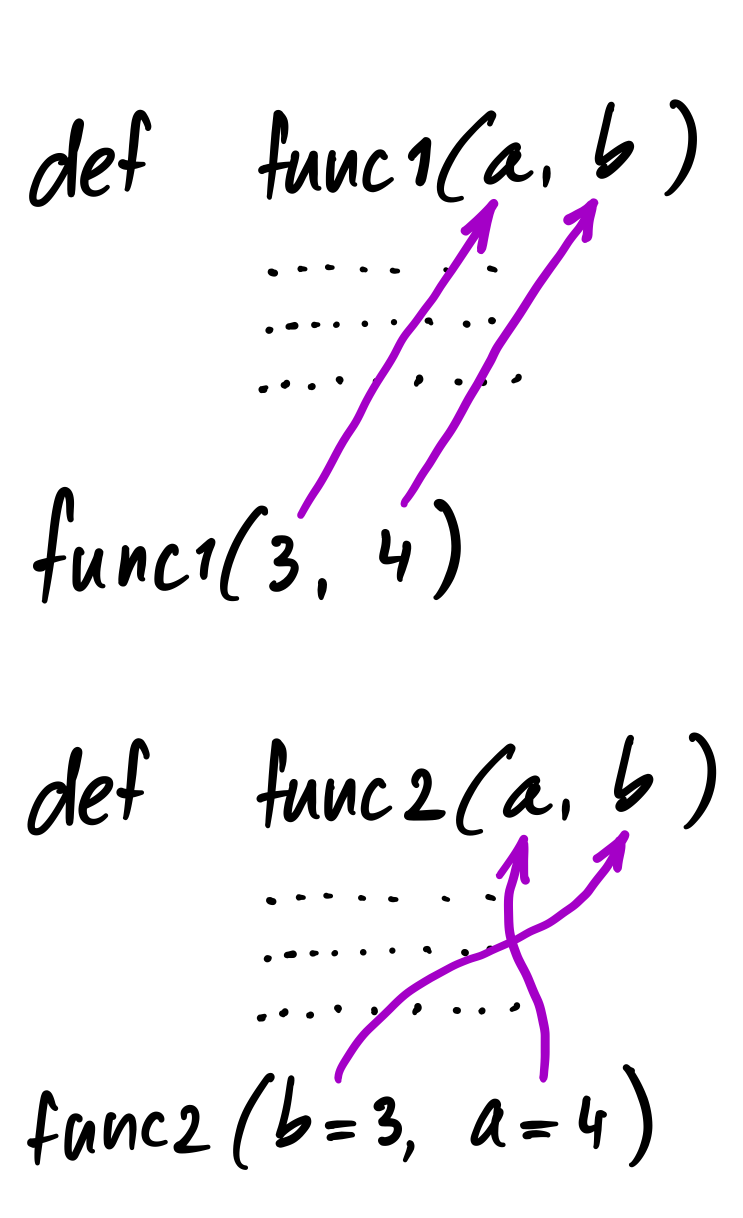 def func1(a, b)
. . . . . . .
. . . . . . . .
. . . . . . . .
func1(3, 4)
def func2(a, b)
. . . . . . .
. . . . . . . .
. . . . . . . .
func2(b=3, a=4)